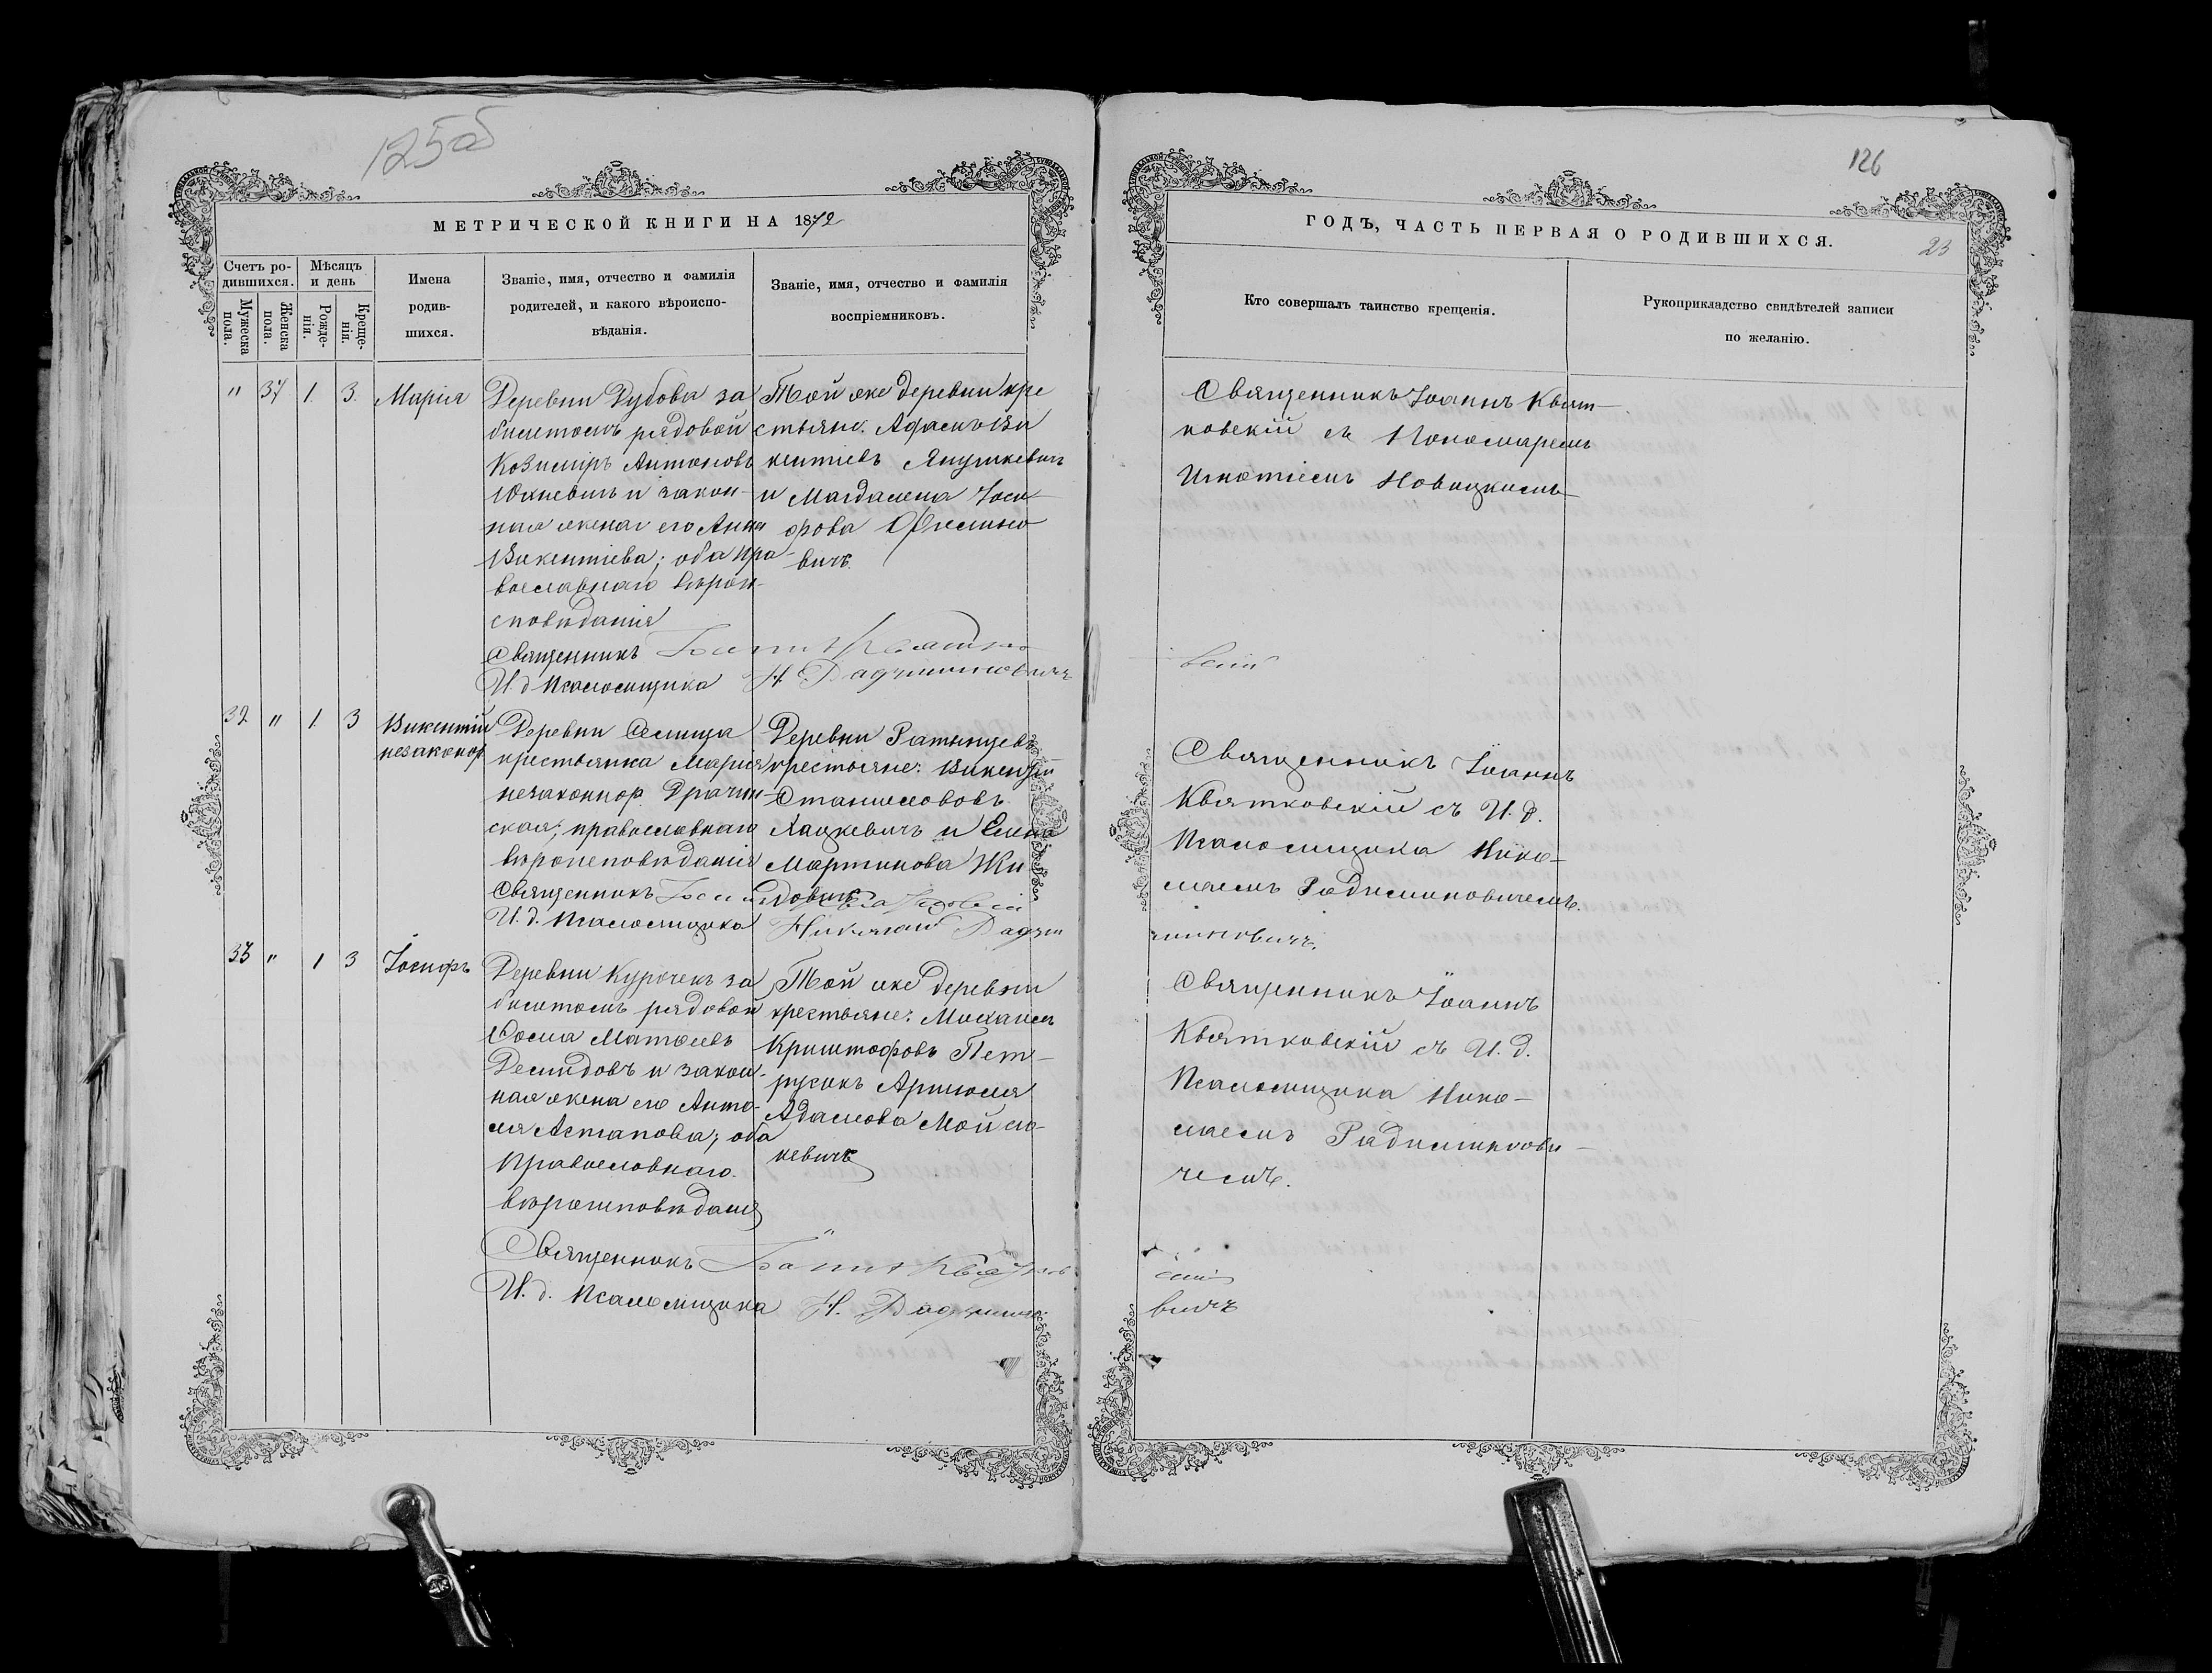 125об
МЕТРИЧЕСКОЙ КНИГИ НА 1872
Счетъ ро-
дившихся.
Мужеска
пола.
Женска
пола.
Мѣсяцъ
и день
Рожде-
нія.
Креще-
нія.
Имена
родив-
шихся.
Званіе, имя, отчество и фамилія
родителей, и какого вѣроиспо-
вѣданія.
Званіе, имя, отчество и фамилія
воспріемниковъ.
" 37 1. 3. Марія
Деревни Дубова за
билетомъ рядовой
Козиміръ Антоновъ
Юхневичъ и закон-
ная жена его Анна
Викентіева; оба пра-
вославнаго вѣрои-
сповѣданія
Священникъ
И. д Псаломщика
Той же деревни кре
стьяне: Адамъ Ви
кентіевъ Янушкевичъ
и Магдалена Іоси-
фова
вичъ.
32 " 1. 3 Викентій
незаконор
Деревни Селища
крестьянка Марія
незаконнор. Драчин-
ская; православнаго
вѣроисповѣданія
Священникъ
И. д. Псаломщика Николай Радзи
Деревни Ратынцевъ
крестьяне: Викентій
Станиславовъ
Лацкевичъ и Елена
Мартинова Жи-
довичъ
33 " 1 3 Іосифъ
Деревни Курочекъ за
билетомъ рядовой
Фома Матѳеевъ
Демидовъ и закон-
ная жена его Анто-
ля Астапова; оба
Православнаго
вѣроисповѣданія
Священникъ Іоаннъ Квятков
И. д. Псаломщика Н. Радзимино-
Той же деревни
крестьяне: Михаилъ
Криштофовъ Пет-
русикъ
Адамова Мойси-
кевичъ
126
ГОДЪ, ЧАСТЬ ПЕРВАЯ О РОДИВШИХСЯ.
23
Кто совершалъ таинство крещенія.
Рукоприкладство свидѣтелей записи
по желанію.
Священникъ Іоаннъ Квят-
ковскій съ Пономаремъ
Игнатіемъ Новицкимъ
вскій
Священникъ Іоаннъ
Квятковскій съ И. д.
Псаломщика Нико-
лаемъ Радзиминовичемъ.
миновичъ.
Священникъ Іоаннъ
Квятковскій съ И. д.
Псаломщика Нико-
лаемъ Радзиминови-
чемъ.
скій
вичъ